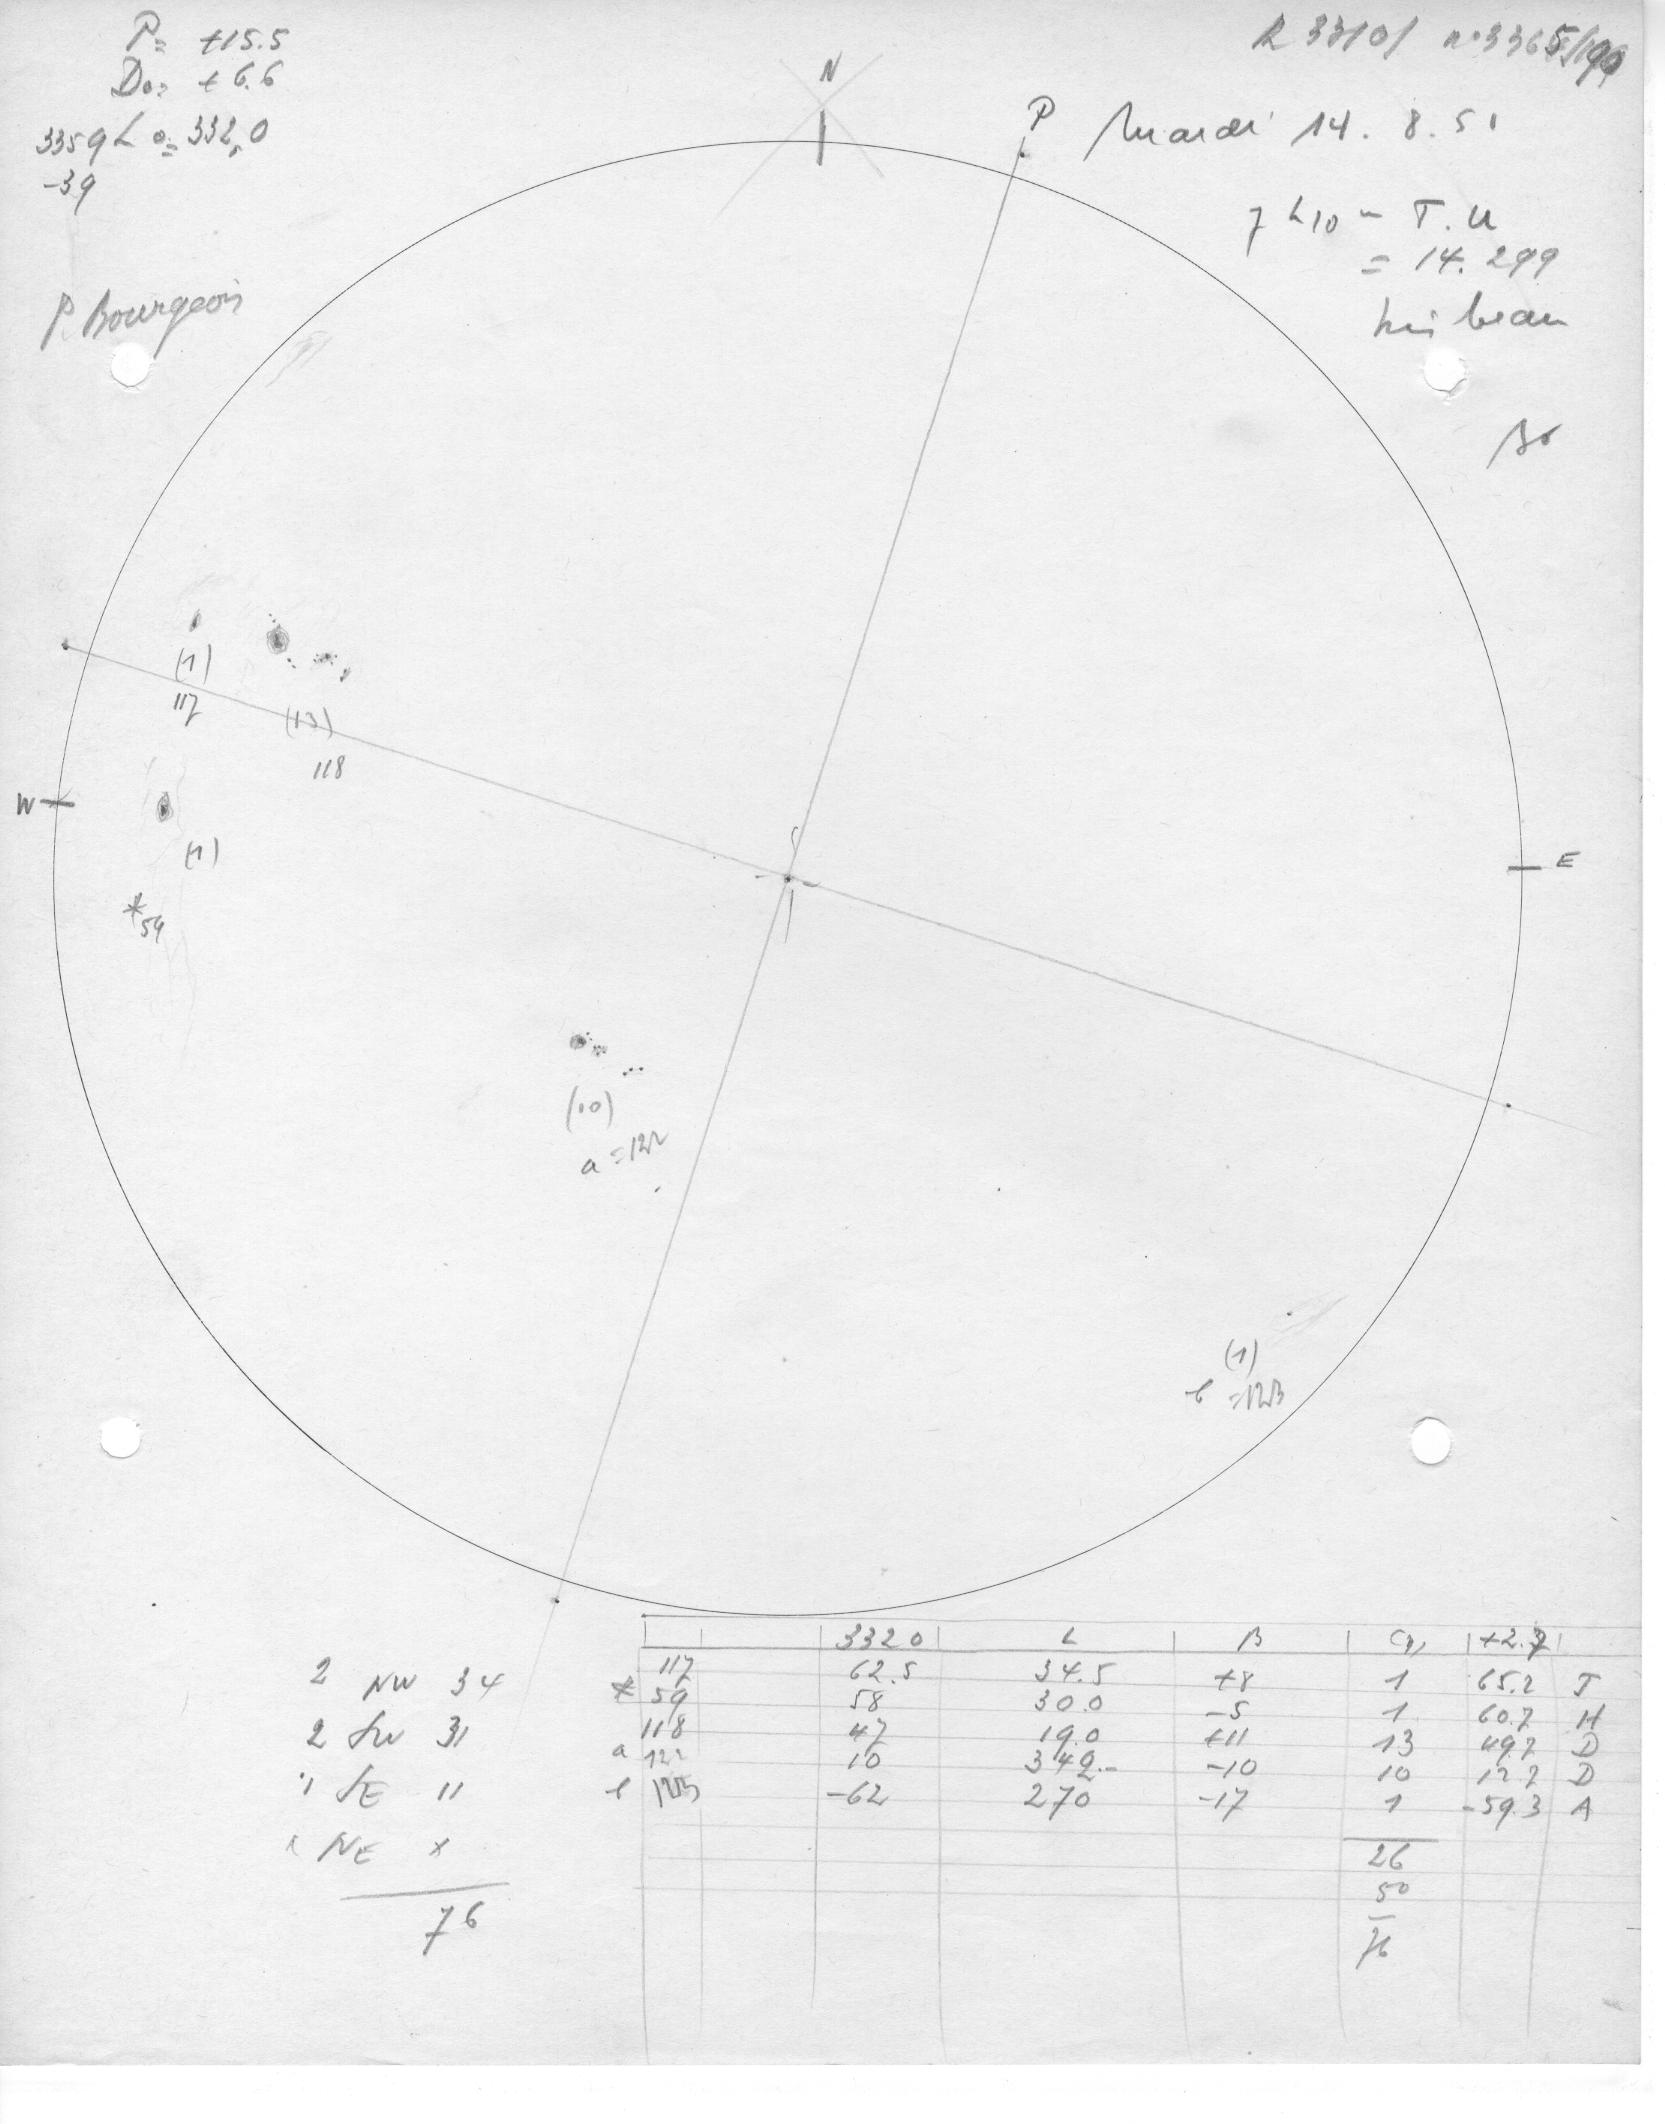 P= +15.5
Do= +6.6
3359 Lo= 332,0
-39
P Bourgeois
N
P
Mardi 14. 8. 51
7 h 10 - T.U
= 14.299
très beau
(1)
117
(13)
118
W
(1)
*59
E
(10)
a=122
(1)
b=123
3320 L B +2.7
117 62.5 34.5 +8 1 65.2 J
* 59 58 30.0 -5 1 60.7 H
118 47 19.0 +11 13 49.7 D
a 122 10 342.- -10 10 12.7 D
b 123 -62 270 -17 1 -59.3 A
26
50
76
2 NW 34
2 SW 31
1 SE 11
NE x
76